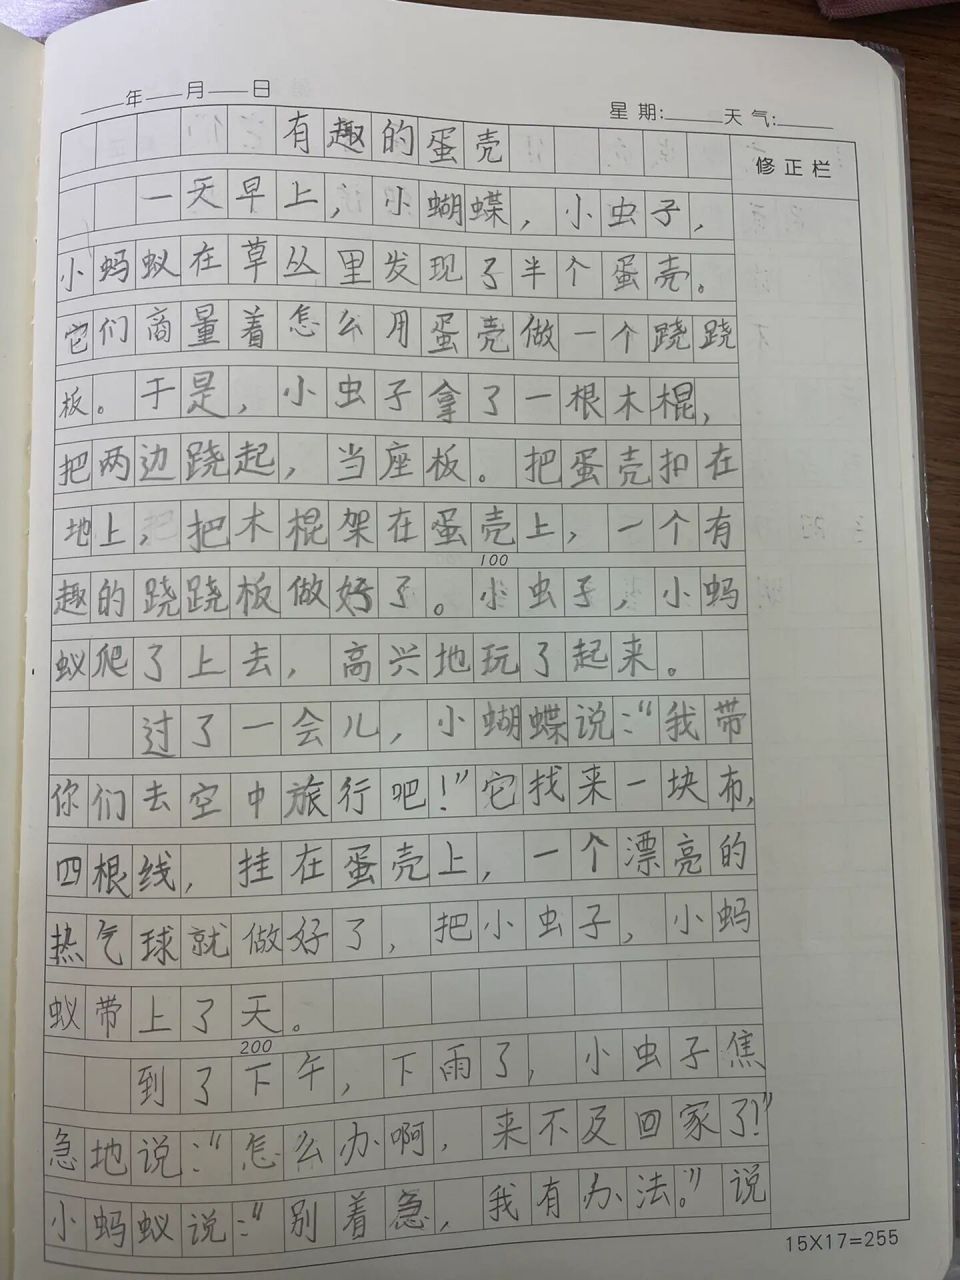 ____年____月____日
星期:_____天气:_____
有趣的蛋壳
修正栏
一天早上，小蝴蝶，小虫子，
小蚂蚁在草丛里发现了半个蛋壳。
它们商量着怎么用蛋壳做一个跷跷
板。于是，小虫子拿了一根木棍，
把两边跷起，当座板。把蛋壳扣在
地上，把木棍架在蛋壳上，一个有
100
趣的跷跷板做好了。小虫子，小蚂
蚁爬了上去，高兴地玩了起来。
过了一会儿，小蝴蝶说：“我带
你们去空中旅行吧！”它找来一块布，
四根线，挂在蛋壳上，一个漂亮的
热气球就做好了，把小虫子，小蚂
蚁带上了天。
200
到了下午，下雨了，小虫子焦
急地说：“怎么办啊，来不及回家了！”
小蚂蚁说：“别着急，我有办法。”说
15X17=255